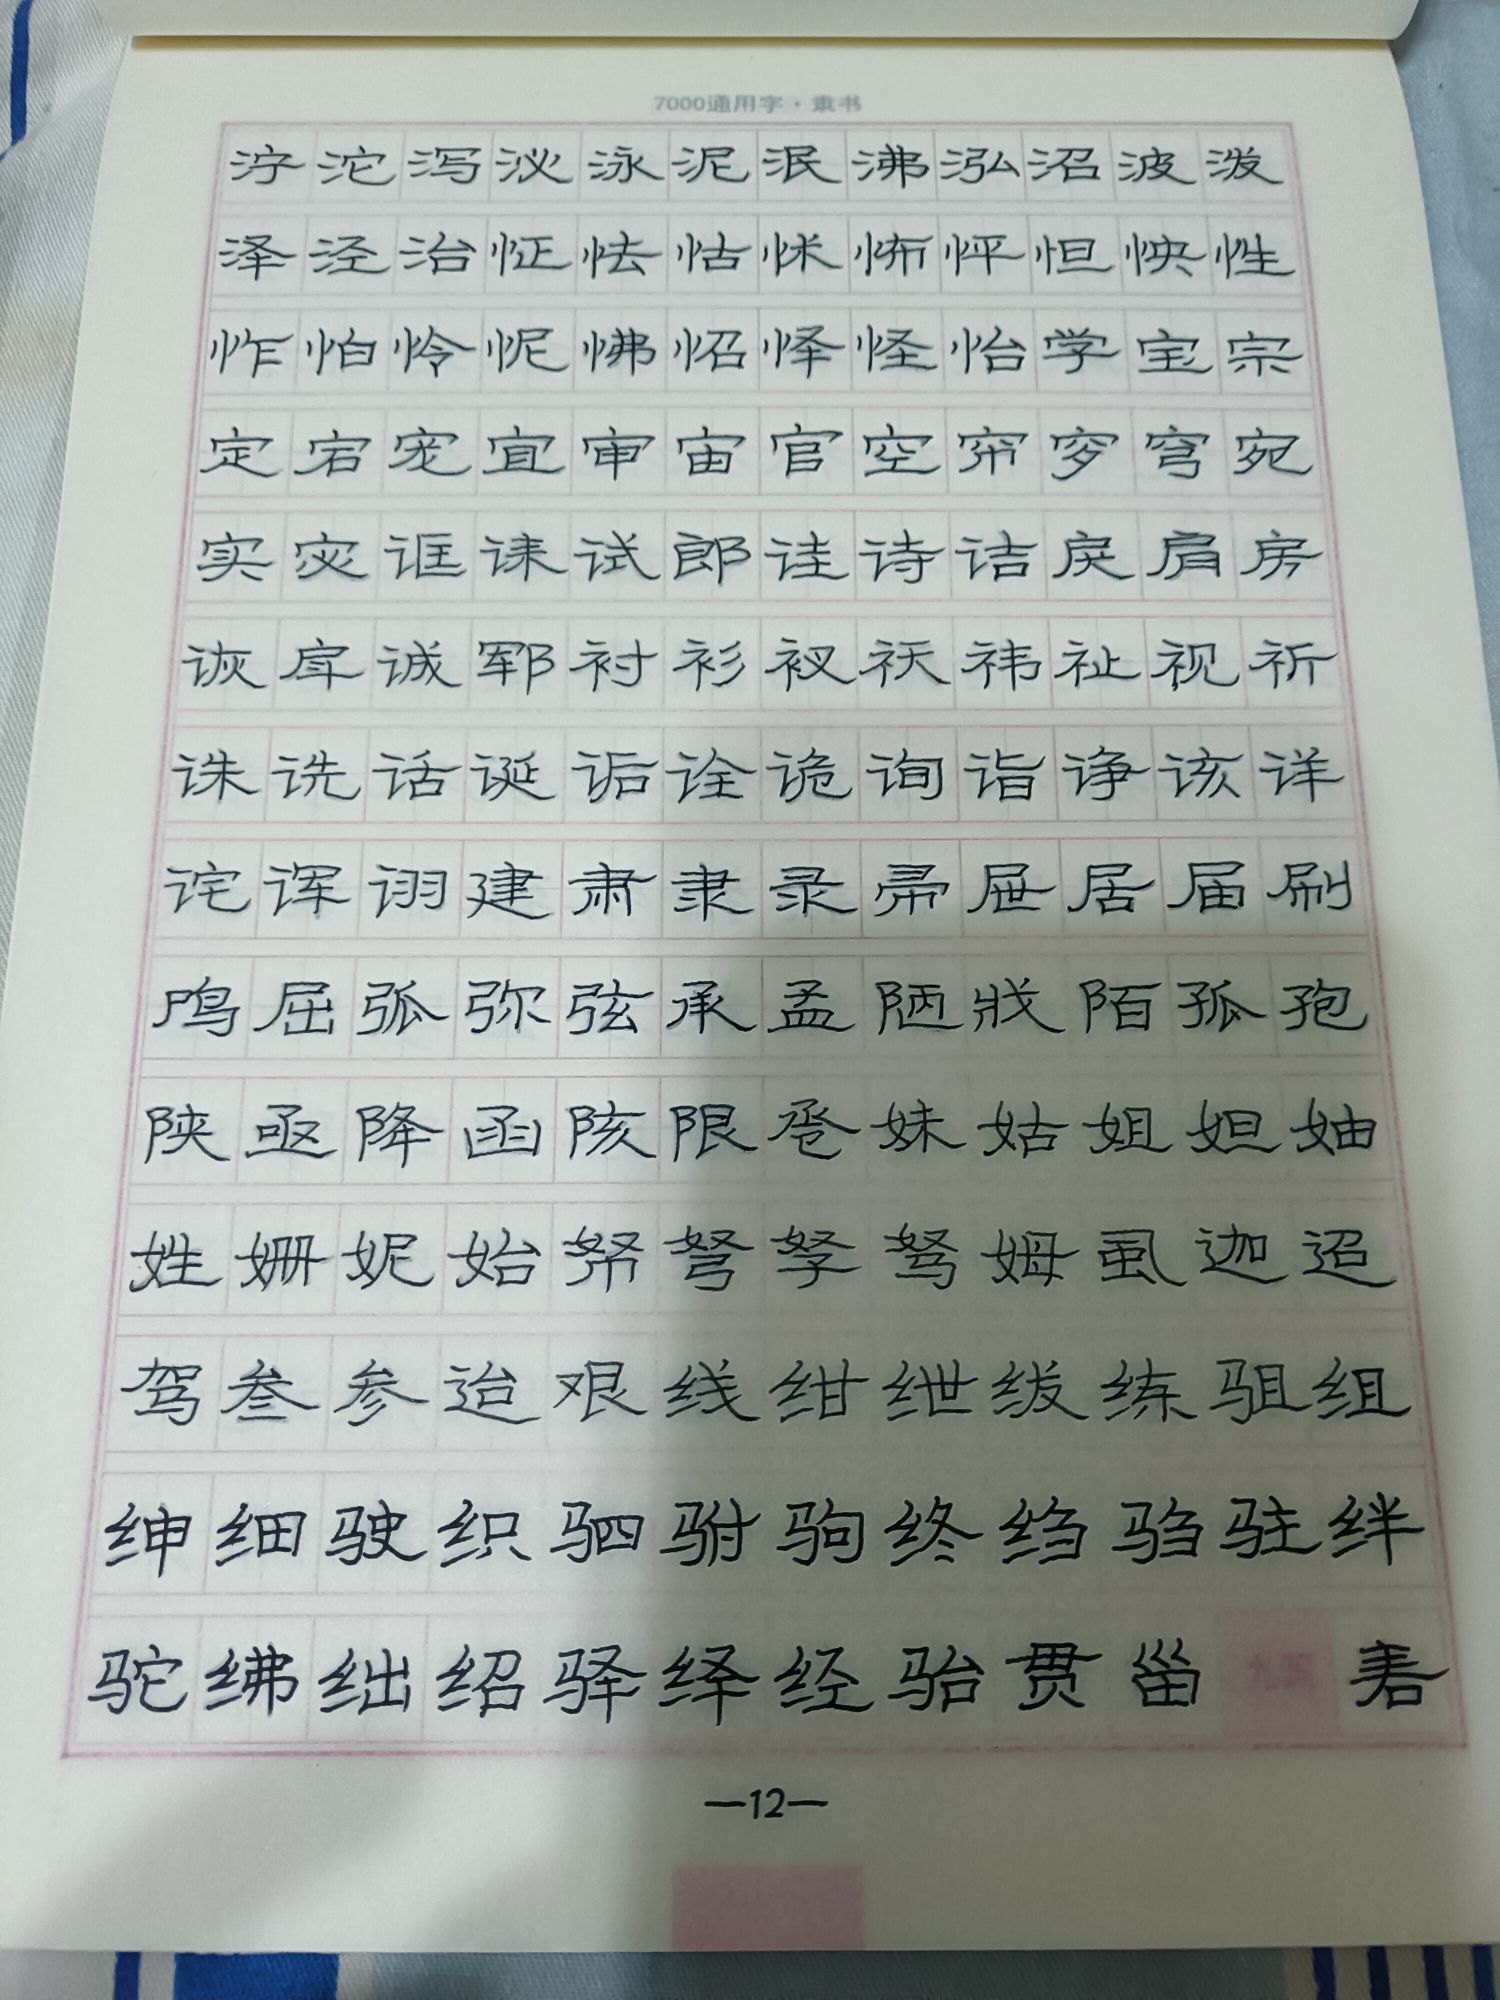 7000通用字·隶书
泞沱泻泌泳泥泯沸泓沼波泼
泽泾治怔怯怙怵怖怦怛怏性
怍怕怜怩怫怊怿怪怡学宝宗
定宕宠宜审宙官空帘穸穹宛
实宓诓诔试郎诖诗诘戾肩房
诙戽诚郓衬衫衩祆祎祉视祈
诛诜话诞诟诠诡询诣诤该详
诧诨诩建肃隶录帚屉居届刷
鸤屈弧弥弦承孟陋戕陌孤孢
陕亟降函陔限卺妹姑姐妲妯
姓姗妮始帑弩孥驽姆虱迦迢
驾叁参迨艰线绀绁绂练驵组
绅细驶织驷驸驹终绉驺驻绊
驼绋绌绍驿绎经骀贯甾 砉
—12—